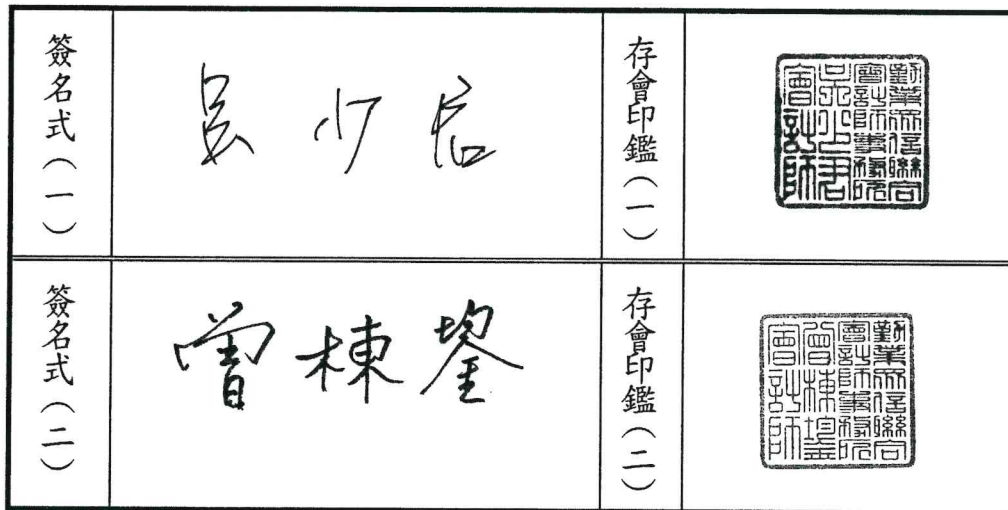 簽名式(一)
吳少君
存會印鑑(一)
勤業眾信聯合
會計師事務所
吳少君
會計師
簽名式(二)
曾棟鋆
存會印鑑(二)
勤業眾信聯合
會計師事務所
曾棟鋆
會計師